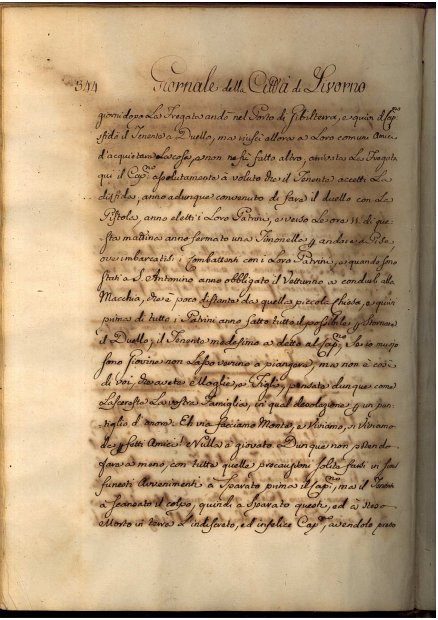 544 Giornale della Città di Livorno
giorni dopo La Fregata andò nel Porto di Gibilterra, e quivi il Cap.no
sfidò il Tenente a Duello, ma riuscì allora a Loro comuni Amici
d'acquietare La cosa, e non ne fù fatto altro, arrivata La Fregata
qui il Cap.no assolutamente à voluto che il Tenente accetti La
disfida, anno adunque convenuto di fare il duello con La
Pistola, anno eletti i Loro Patrini, e verso Le ore 11 di que-
sta mattina anno fermato una Timonella p andare a Pisa,
ove imbarcatisi i Combattenti con i Loro Patrini, e quando sono
stati a S. Antonino anno obbligato il Vetturino a condurli alla
Macchia, che è poco distante da quella piccola Chiesa, e quivi
prima di tutto i Patrini anno fatto tutto il possibile p Stornare
il Duello, il Tenente medesimo a detto al Cap.no Se io muojo
sono Giovine non La povarino a piangere, ma non è così
di voi, che avete e Moglie, e Figli, pensate dunque come
Lascereste La vostra Famiglia, in qual desolazione p un pun-
tiglio d'onore. Eh via facciamo Monte, e Viviamo, e Viviamo
da p fatti Amici. Nulla à giovato. Dunque non potendo
fare a meno, con tutte quelle precauzioni solite farsi in simi
funesti Avvenimenti à Sparato prima il Cap.no, ma il Tenente
à scansato il colpo, quindi à Sparato questi, ed à Steso
Morto in terra L'indiscreto, ed infelice Cap.no, avendolo preso